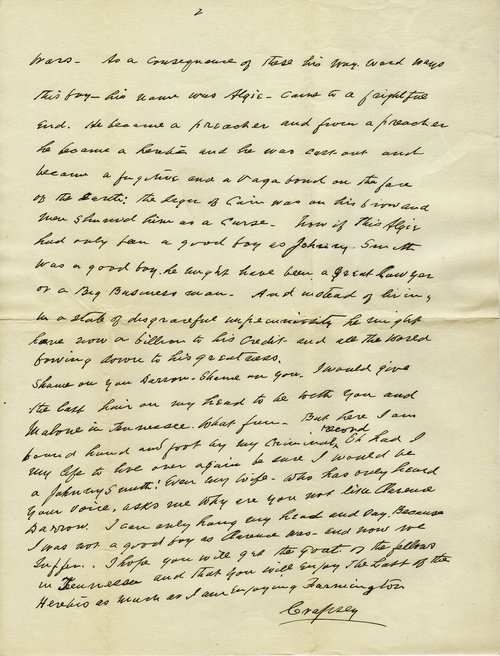 2
Wars - As a consequence of these his way ward ways
this boy - his name was Algie - came to a frightful
End. He became a preacher and from a preacher
he became a heretic and he was cast out and
became a fugitive and a vagabond on the face
of the Earth: the of Cain was on his brow and
Men shunned him as a Curse. Now if this Algie
had only been a good boy as Johnny Smith
was a good boy, he might have been a Great Lawyer
or a Big Business man. And instead of living
in a state of disgraceful impecuniosity he might
have now a billion to his Credit and all the World
bowing down to his greatness.
Shame on you Darrow - Shame on you. I would give
the last hair on my head to be with you and
Malone in Tennessee. What fun. But here I am
bound hand and foot by my Criminal record, Oh had I
my life to live over again be sure I would be
a Johnny Smith! Even my wife - who has only heard
your voice, asks me why are you not like Clarence
Darrow. I can only hang my head and say, Because
I was not a good boy as Clarence was - and now we
suffer. I hope you will get the Goat of the fellows
in Tennessee and that you will enjoy the Last of the
Heretics as much as I am Enjoying Farmington
Crapsey